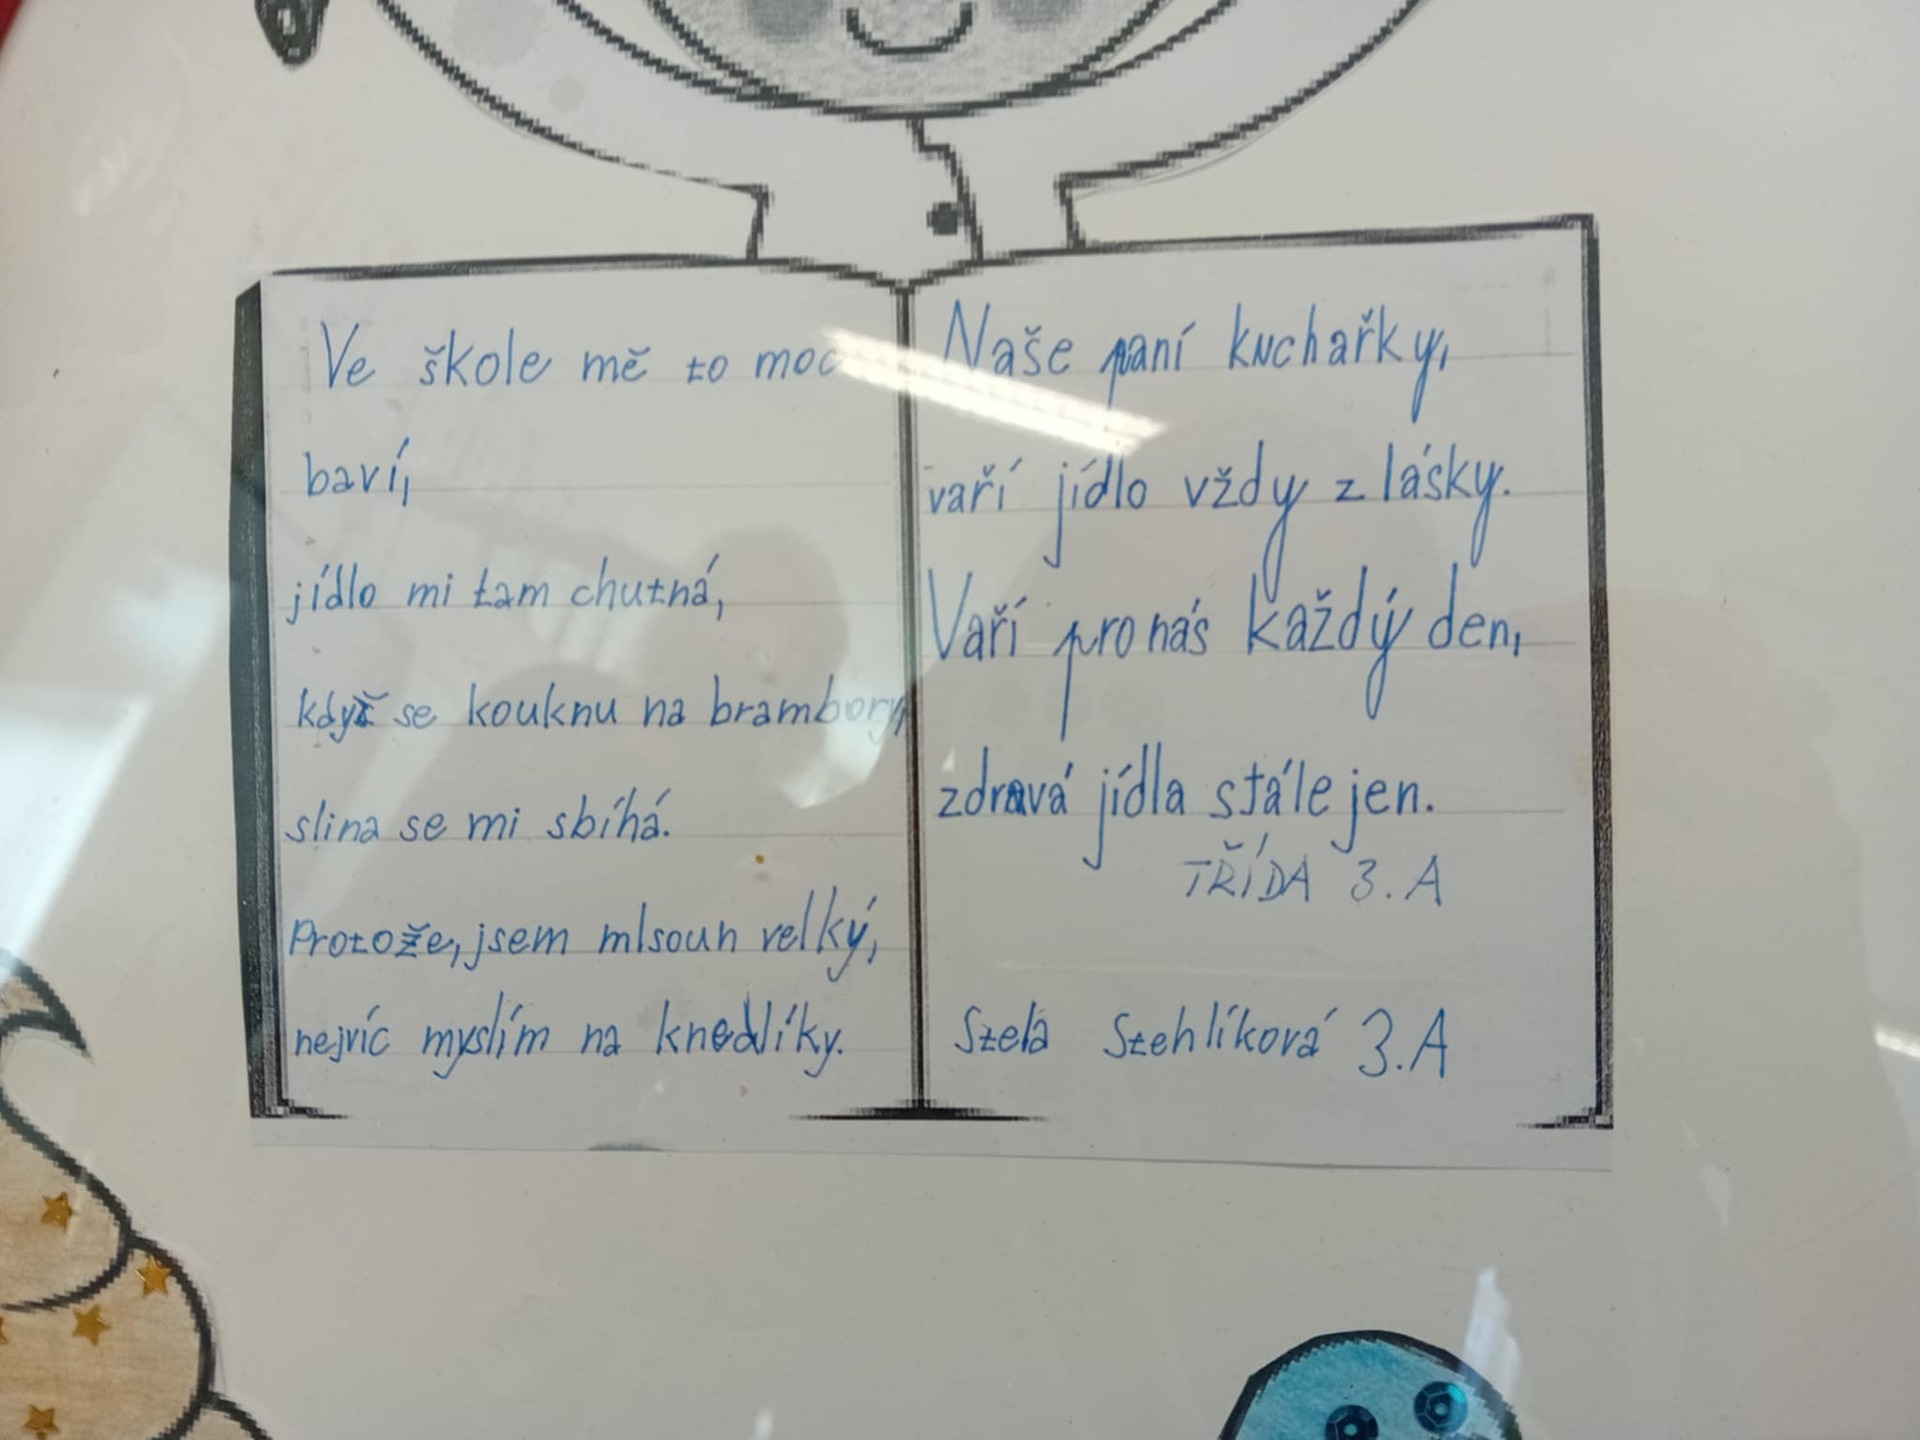 Ve škole mě to moc
baví,
jídlo mi tam chutná,
když se kouknu na brambory,
slina se mi sbíhá.
Protože, jsem mlsoun velký,
nejvíc myslím na knedlíky.
Naše paní kuchařky,
vaří jídlo vždy z lásky.
Vaří pro nás každý den,
zdravá jídla stále jen.
TŘÍDA 3.A
Stela Stehlíková 3.A